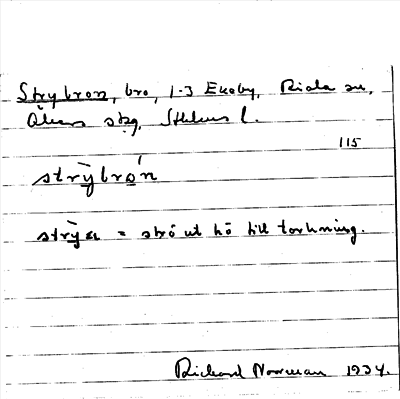 Strybron, bro, 1-3 Ekeby, Riala sn,
Åkers skg, Sthlms l.
115
strȳbro̩n
strȳa = strö ut hö till torkning.
Richard Norrman 1934.